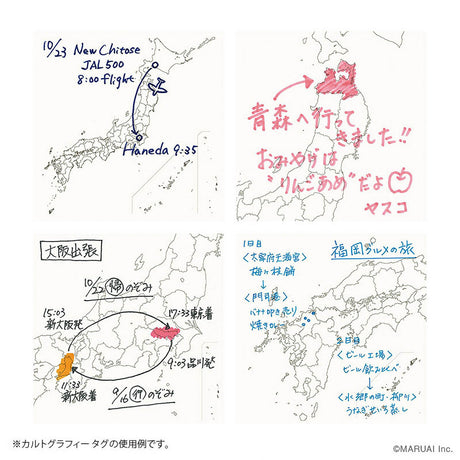 10/23 New Chitose
JAL500
8:00 flight
Haneda 9:35
青森へ行って
きました!!
おみやげは
"りんごあめ"だよ
ヤスコ
大阪出張
10/22 帰 のぞみ
15:03
新大阪発
17:33 東京着
9:03 品川発
9/16 行 のぞみ
11:33
新大阪着
福岡グルメの旅
1日目
<太宰府天満宮>
梅ヶ枝餅
<門司港>
バナナ叩き売り
焼きカレー
2日目
<ビール工場>
ビール飲み比べ
<水郷の町・柳川>
うなぎせいろ蒸し
※カルトグラフィー タグの使用例です。
©MARUAI Inc.